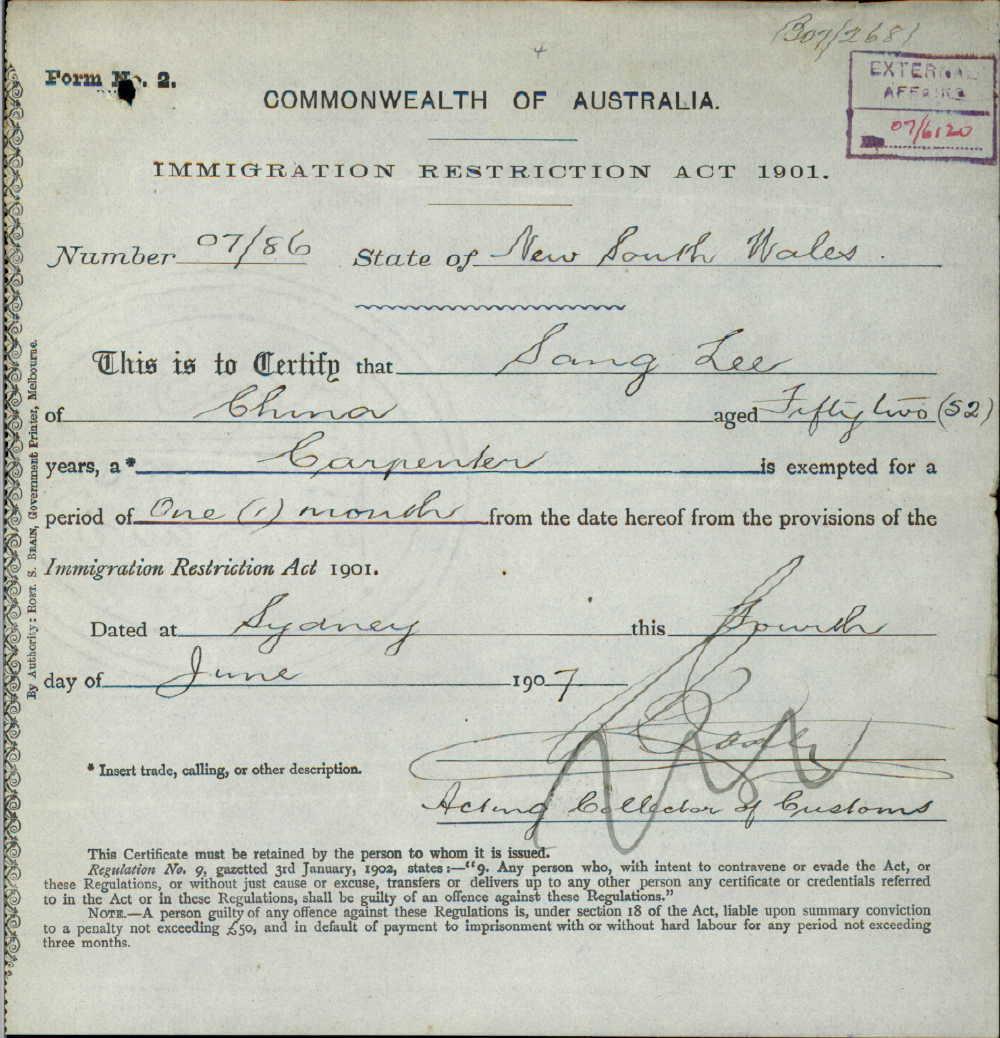 B07/2681
Form No. 2.
EXTERNAL
AFFAIRS
07/6120
COMMONWEALTH OF AUSTRALIA.
IMMIGRATION RESTRICTION ACT 1901.
Number 07/86 State of New South Wales.
This is to Certify that Sang Lee
of China aged Fifty two (52)
years, a* Carpenter is exempted for a
period of One (1) month from the date hereof from the provisions of the
Immigration Restriction Act 1901.
Dated at Sydney this Fourth
day of June 1907
* Insert trade, calling, or other description.
Acting Collector of Customs
This Certificate must be retained by the person to whom it is issued.
Regulation No. 9, gazetted 3rd January, 1902, states:—"9. Any person who, with intent to contravene or evade the Act, or
these Regulations, or without just cause or excuse, transfers or delivers up to any other person any certificate or credentials referred
to in the Act or in these Regulations, shall be guilty of an offence against these Regulations."
NOTE.—A person guilty of any offence against these Regulations is, under section 18 of the Act, liable upon summary conviction
to a penalty not exceeding £50, and in default of payment to imprisonment with or without hard labour for any period not exceeding
three months.
By Authority: ROBT. S. BRAIN, Government Printer, Melbourne.